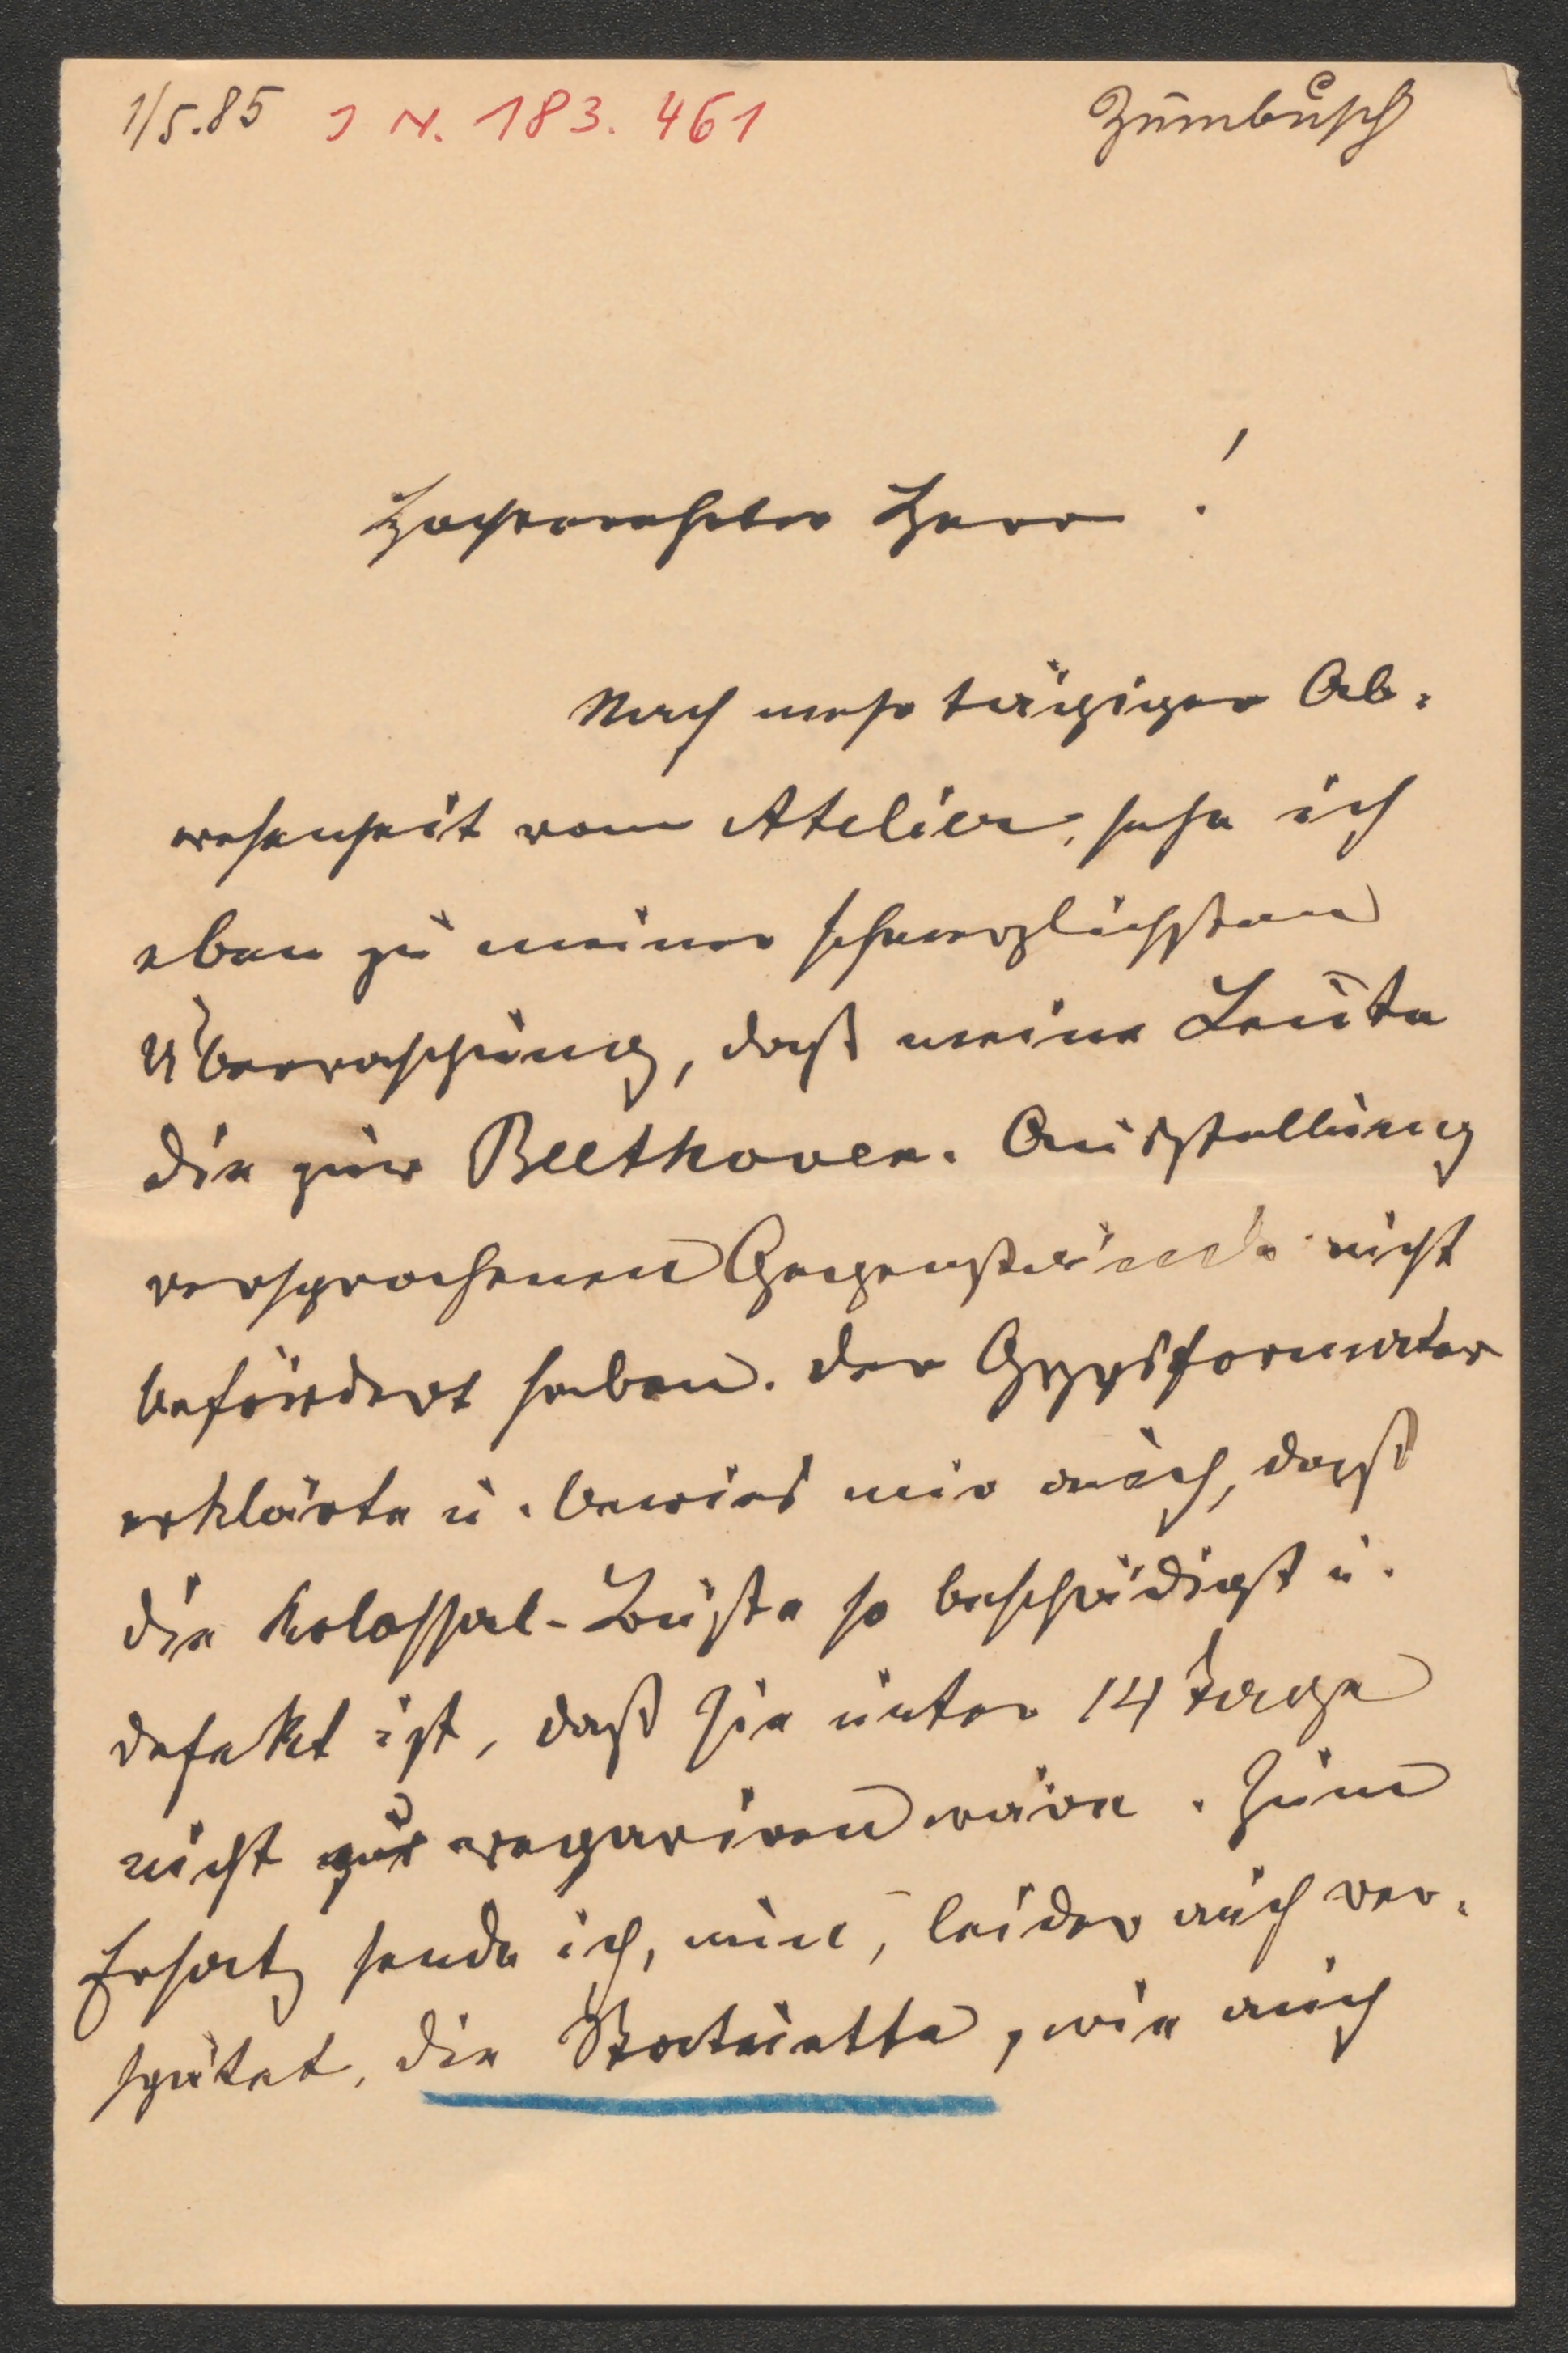 1/5.85 I N. 183.461 Zumbusch
Hochverehrter Herr!
Nach mehrtägiger Ab-
wesenheit vom Atelier, sehe ich
eben zu meiner schmerzlichsten
Überraschung, daß meine Leute
die zur Beethoven-Ausstellung
versprochenen Gegenstände nicht
befördert haben. Der Gypsformator
erklärte u. bewies mir auch, daß
die Kolossal-Büste so beschädigt u.
defekt ist, daß sie unter 14 Tage
nicht zu repariren wäre. Zum
Ersatz sende ich, nun, leider auch ver-
spätet, die Statuette, wie auch